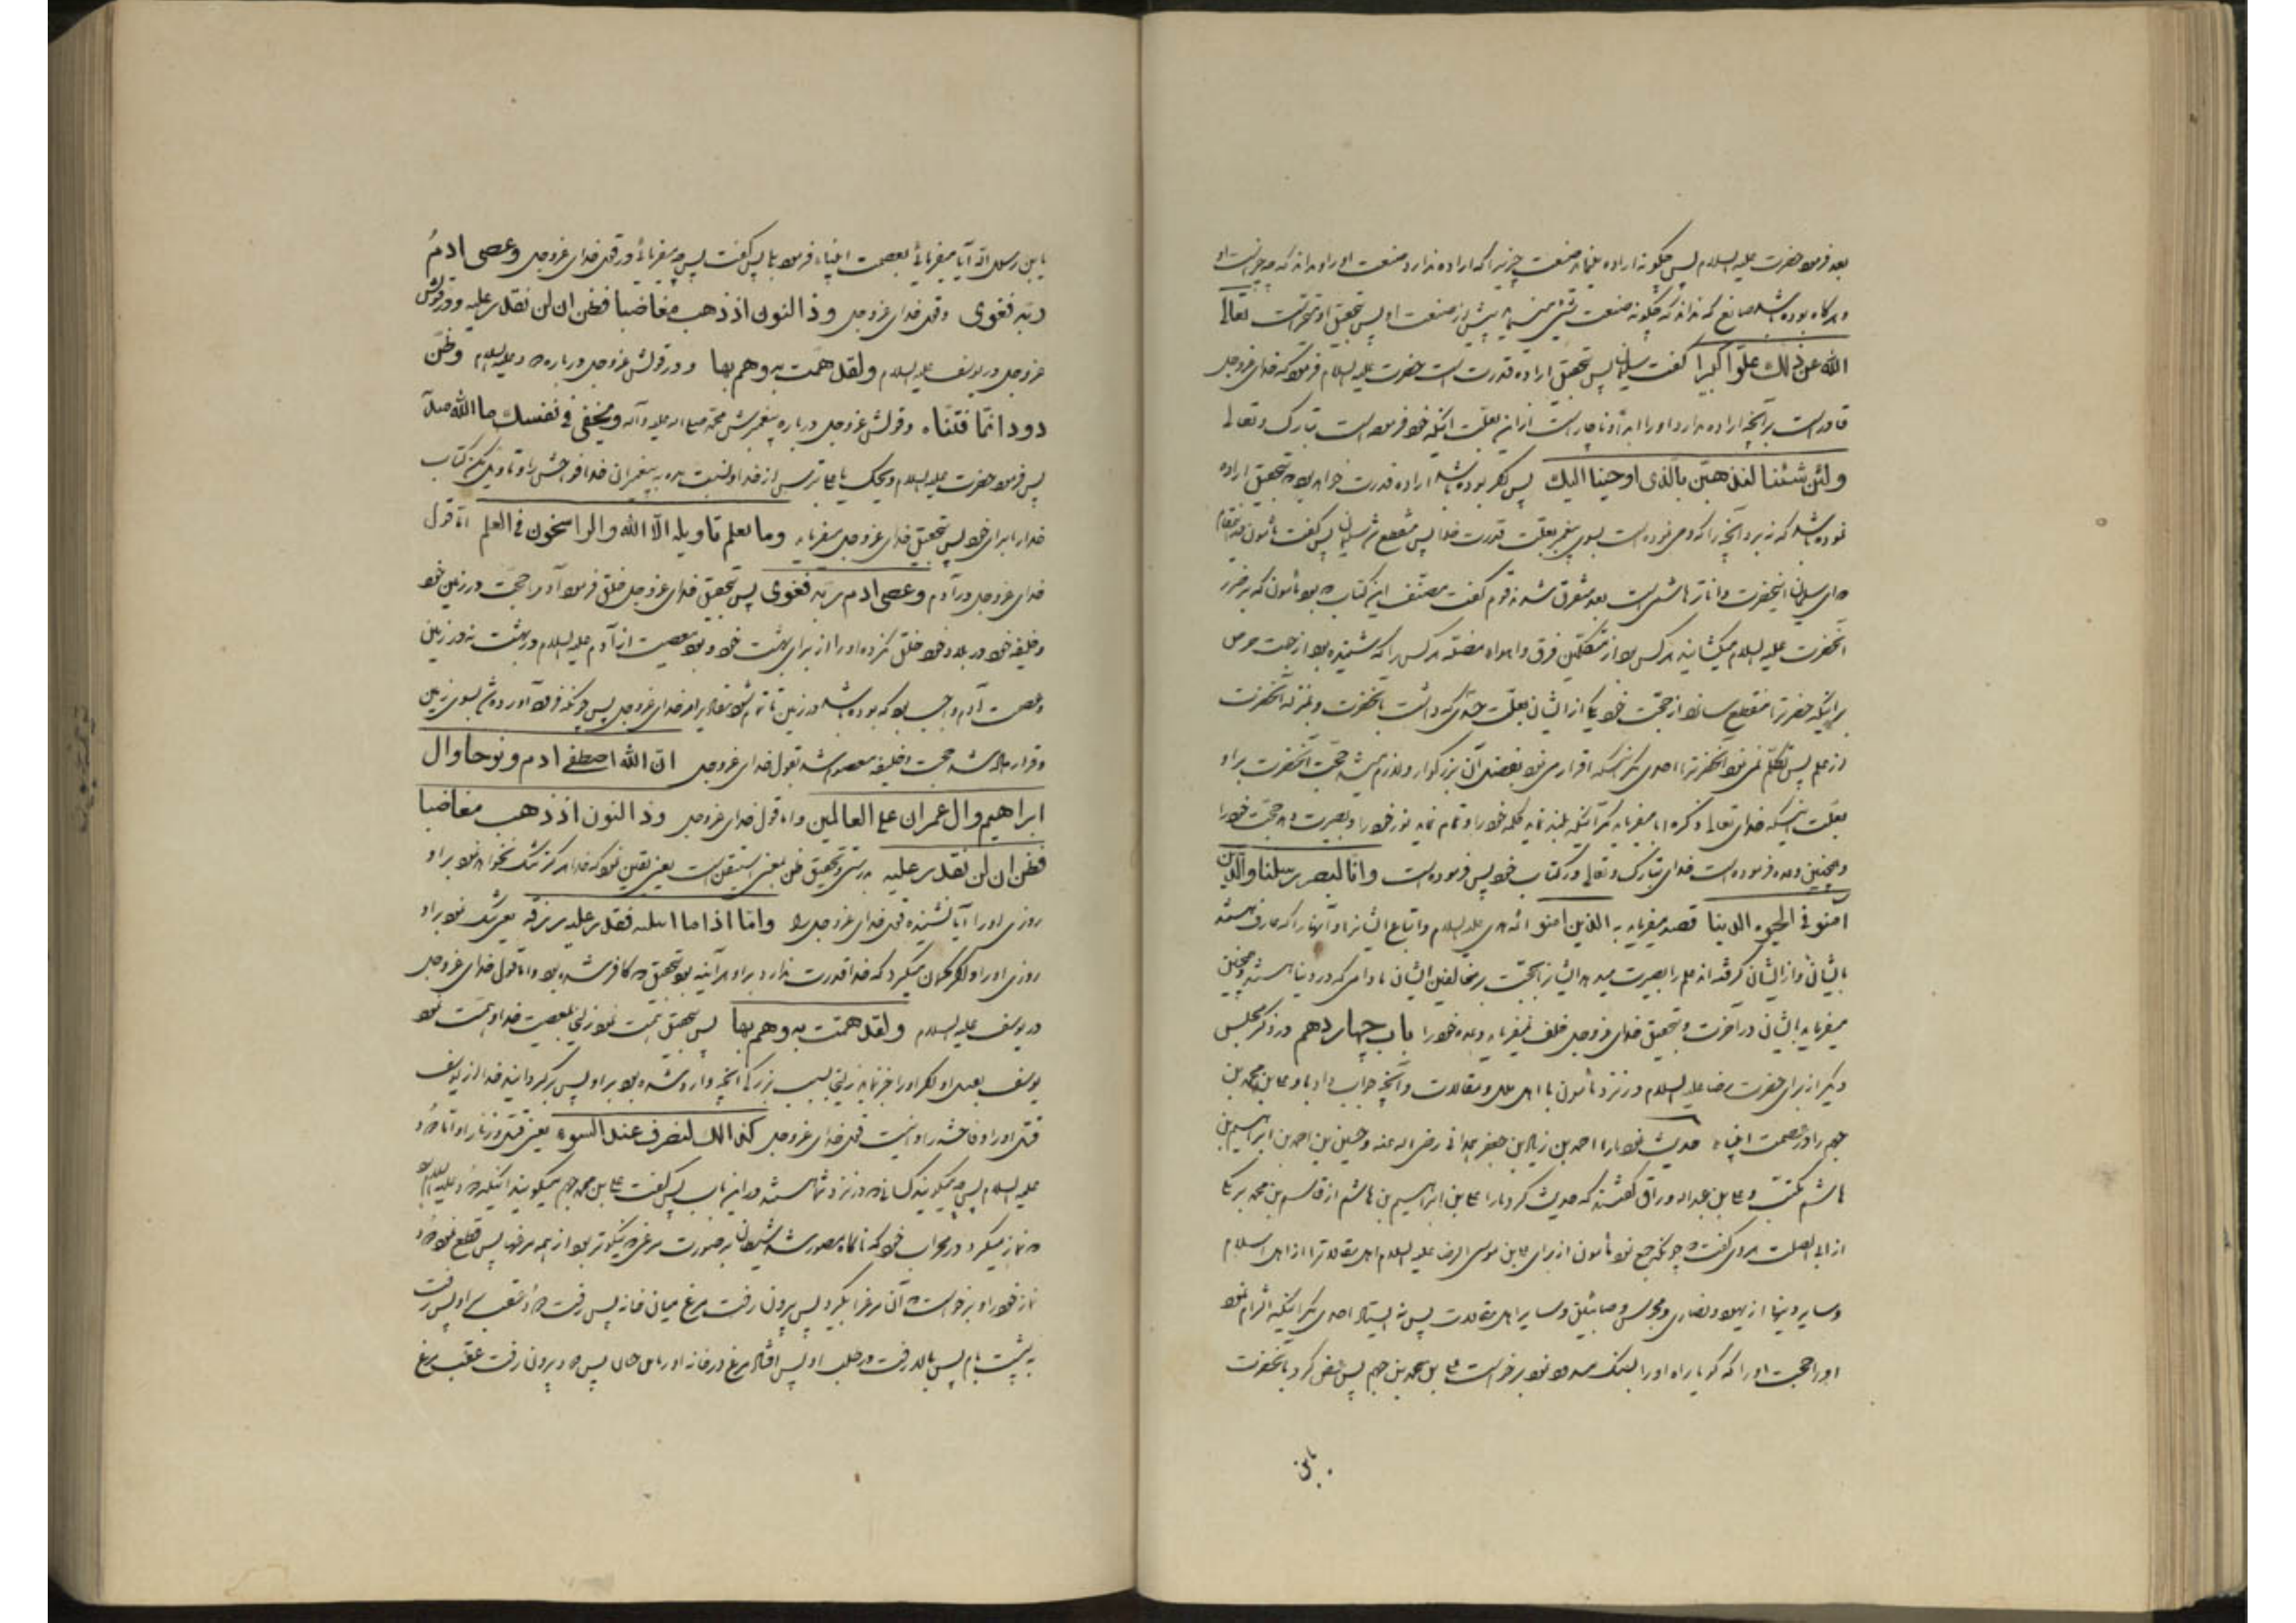 بعد فرمود حضرت علیه السلام پس چگونه اراده مینماید صنعت چیزیرا که اراده ندارد صنعت او را و نداند که چه چیز است او
و هرگاه بوده باشد صانع که نداند که چگونه صنعت شیء پیش از صنعت او پس بتحقیق او متحیر است تعالی
الله عن ذلك علوّا كبيرا گفت سلیمان پس بتحقیق اراده قدرت است حضرت علیه السلام فرمود که خدای عزوجل
قادر است بر آنچه اراده ندارد او را ابدا و ناچار است از این بعلت اینکه خود فرموده است تبارک و تعالی
ولئن شئنا لنذهبن بالذى اوحينا اليك پس اگر بوده باشد اراده قدرت خواهد بود بتحقیق اراده
نموده باشد که نبرد آنچه را که وحی نموده است بسوی پیغمبر بعلت قدرت خدا پس منقطع شد سلیمان پس گفت مأمون
ای سلیمان اینحضرت داناتر هاشمی است بعد متفرق شدند قوم گفت مصنف این کتاب بود مأمون که بر ضرر
آنحضرت علیه السلام میکشانید هر کس بود از متکلمین فرق و اهواء مضله هر کس را که شنیده بود از جهت حرص
بر اینکه حضرترا منقطع سازد از حجت خود یکی از ایشان بعلت حسدی که داشت بآنحضرت و بمنزله آنحضرت
از علم پس تکلم نمینمود آنحضرترا احدی مگر اینکه اقرار می نمود بفضل آن بزرگوار و لازم میشد حجت آنحضرت بر او
بعلت اینکه خدای تعالی ذکره ابا میفرماید مگر اینکه بلند نماید کلمه خود را و تمام نماید نور خود را و نصرت دهد حجت خود را
و همچنین وعده فرموده است خدای تبارک و تعالی در کتاب خود پس فرموده است وانّا لننصر رسلنا والذین
امنوا فى الحيوة الدنيا قصد میفرماید به الذین امنوا ائمه هدی علیه السلام و اتباع ایشانرا و آنها را که عارف هستند
بایشان و از ایشان گرفته اند علم را بنصرت میدهد ایشانرا بحجت بر مخالفین ایشان مادامی که در دنیا هستند و همچنین
میفرماید بایشان در آخرت و بتحقیق خدای عزوجل خلف نمیفرماید وعده خود را باب چهاردهم در ذکر مجلس
دیگر از برای حضرت رضا علیه السلام در نزد مأمون با اهل ملل و مقالات و آنچه جواب داد باو علی بن محمد بن
جهم را در عصمت انبیاء حدیث نمود ما را احمد بن زیاد بن جعفر همدانی رضی الله عنه و حسین بن احمد بن ابراهیم بن
هاشم مکتب و علی بن عبدالله وراق گفتند که حدیث کرد ما را علی بن ابراهیم بن هاشم از قاسم بن محمد برمکی
از ابی الصلت هروی گفت چونکه جمع نمود مأمون از برای علی بن موسی الرضا علیه السلام اهل مقالاترا از اهل اسلام
و سایر دینها از یهود و نصاری و مجوس و صابئین و سایر اهل مقالات پس نه ایستاد احدی مگر اینکه الزام نمود
او را حجت او را که گویا راه او را بسنگ سد نمود برخواست علی بن محمد بن جهم پس عرض کرد بآنحضرت
یابن
یابن رسول الله آیا میفرمائی بعصمت انبیاء فرمود بلی پس گفت پس چه میفرمائی در قول خدای عزوجل وعصى ادم
ربّه فغوى و قول خدای عزوجل وذا النون اذ ذهب مغاضبا فظن ان لن نقدر عليه و در قولش
عزوجل در یوسف علیه السلام ولقد همّت به وهم بها و در قولش عزوجل درباره داود علیه السلام وظنّ
دود انّما فتنّاه و قولش عزوجل درباره پیغمبرش محمد صلی الله علیه و آله وتخفى فى نفسك ما الله مبدیه
پس فرمود حضرت علیه السلام ویحک یا علی بترس از خدا و نسبت مده به پیغمبران خدا فواحش را و تاویل مکن کتاب
خدا را برای خود پس بتحقیق خدای عزوجل میفرماید وما يعلم تاويله الّا الله والراسخون فى العلم اما قول
خدای عزوجل در آدم وعصى ادم ربّه فغوى پس بتحقیق خدای عزوجل خلق فرمود آدم را حجت در زمین خود
و خلیفه خود در بلاد خود خلق نکرده او را از برای بهشت خود و بود معصیت از آدم علیه السلام در بهشت نه در زمین
و عصمت آدم واجب بود که بوده باشد در زمین تا تمام شود مقادیر امر خدای عزوجل پس چونکه فرود آورده شد بسوی زمین
و قرار داده شد حجت و خلیفه معصوم شد بقول خدای عزوجل انّ الله اصطفى ادم ونوحا وال
ابراهيم وال عمران على العالمين و اما قول خدای عزوجل وذا النون اذ ذهب مغاضبا
فظن ان لن نقدر عليه بدرستی و تحقیق ظن بمعنی استیقن است یعنی یقین نمود که خدا هرگز تنگ نخواهد نمود بر او
روزی او را آیا نشنیده قول خدای عزوجل را وامّا اذا ما ابتلیه فقدر عليه رزقه یعنی تنگ نمود بر او
روزی او را و اگر گمان میکرد که خدا قدرت ندارد بر او هرآینه بود بتحقیق که کافر شده بود و اما قول خدای عزوجل
در یوسف علیه السلام ولقد همّت به وهم بها پس بتحقیق همت نمود زلیخا بمعصیت خدا و همت نمود
یوسف بقتل او اگر او را جبر نماید زلیخا بسبب بزرگی آنچه وارد شده بود بر او پس برگردانید خدا از یوسف
قتل او را و فاحشه را و اینست قول خدای عزوجل كذالك لنصرف عنه السوء یعنی قتل و زنا را و اما داود
علیه السلام پس چه میگویند کسانیکه در نزد شما هستند در این باب پس گفت علی بن محمد جهم میگویند اینکه داود علیه السلام بود
که نماز میکرد در محراب خود که ناگاه مصور شد شیطان بر صورت مرغی که نیکوتر بود از همه مرغها پس قطع نمود داود
نماز خود را و برخواست که آن مرغرا بگیرد پس بیرون رفت مرغ میان خانه پس رفت داود عقب او پس رفت
به پشت بام پس بالا رفت در طلب او پس افتاد مرغ در خانه اوریا بن حنان پس داود بیرون رفت عقب مرغ